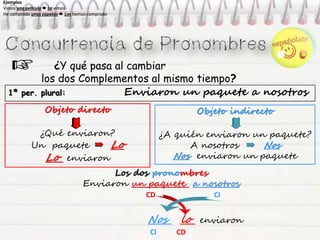 Ejemplos
Vimos una película ➨ La vimos
He comprado unos zapatos ➨ Los hemos comprado
Concurrencia de Pronombres
☞ ¿Y qué pasa al cambiar
los dos Complementos al mismo tiempo?
1ª per. plural: Enviaron un paquete a nosotros
Objeto directo
¿Qué enviaron?
Un paquete ➨ Lo
Lo enviaron
Objeto indirecto
¿A quién enviaron un paquete?
A nosotros ➨ Nos
Nos enviaron un paquete
Los dos pronombres
Enviaron un paquete a nosotros
CD CI
Nos lo enviaron
CI CD